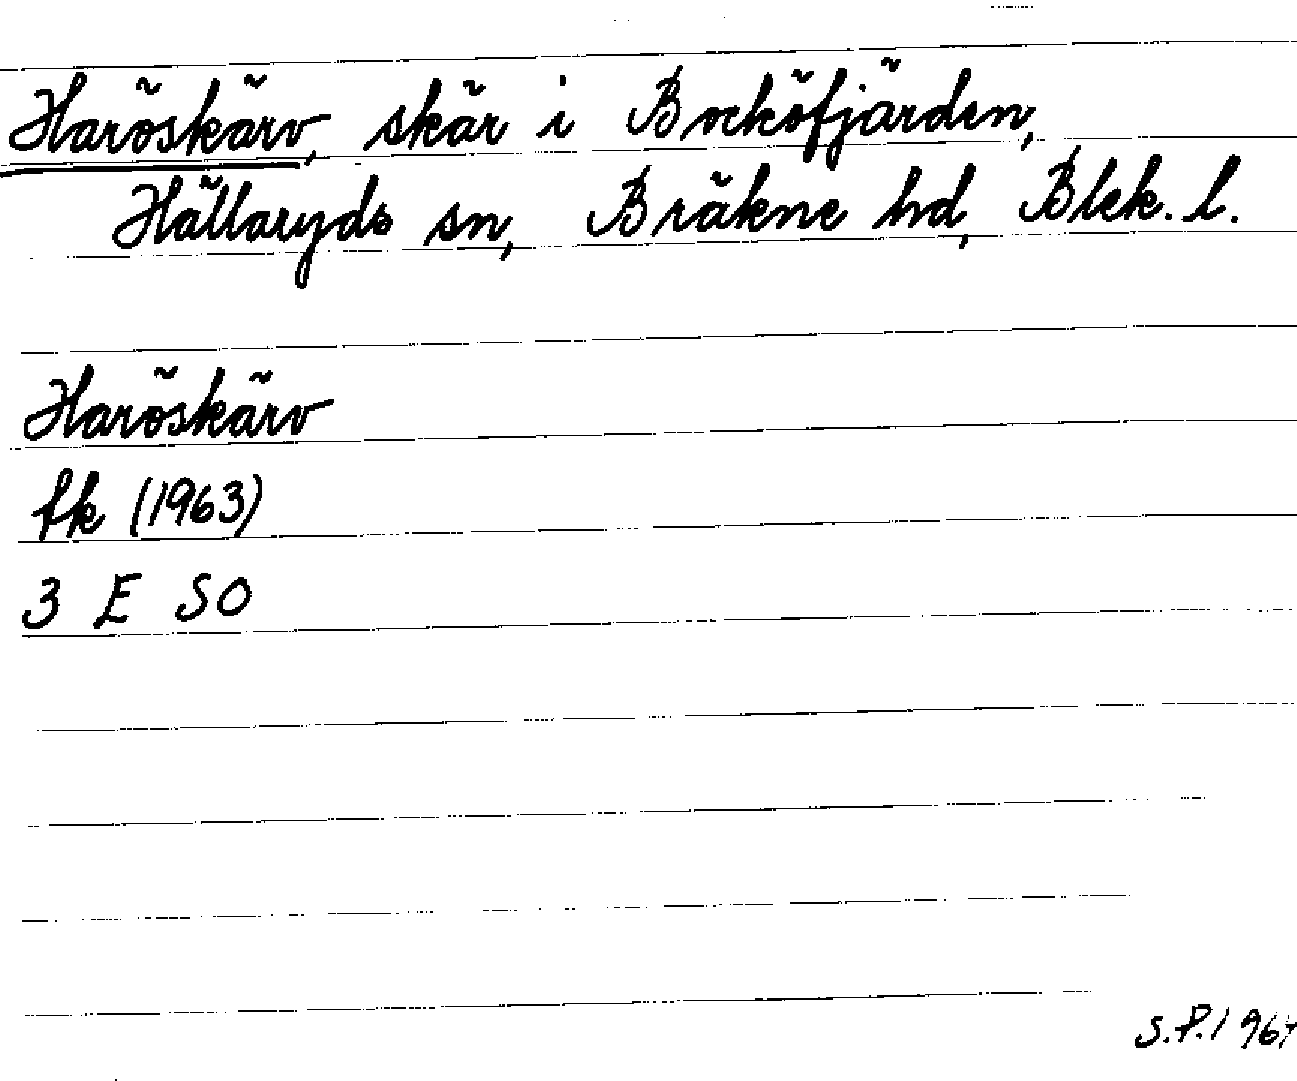 Haröskärv, skär i Bocköfjärden,
Hällaryds sn, Bräkne hd, Blek. l.
Haröskärv
fk (1963)
3 E SO
S.P. 1964